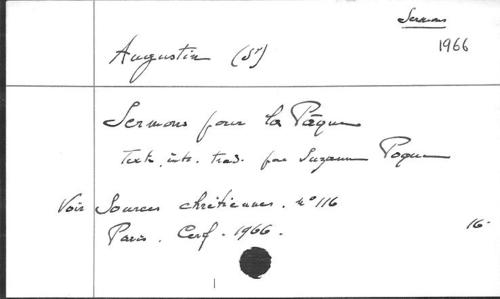 Sermons
1966
Augustin (St)
Sermons pour la Pâque
Texte, intr. trad. par Suzanne Poque
Voir Sources chrétiennes. n° 116
Paris. Cerf. 1966.
16-